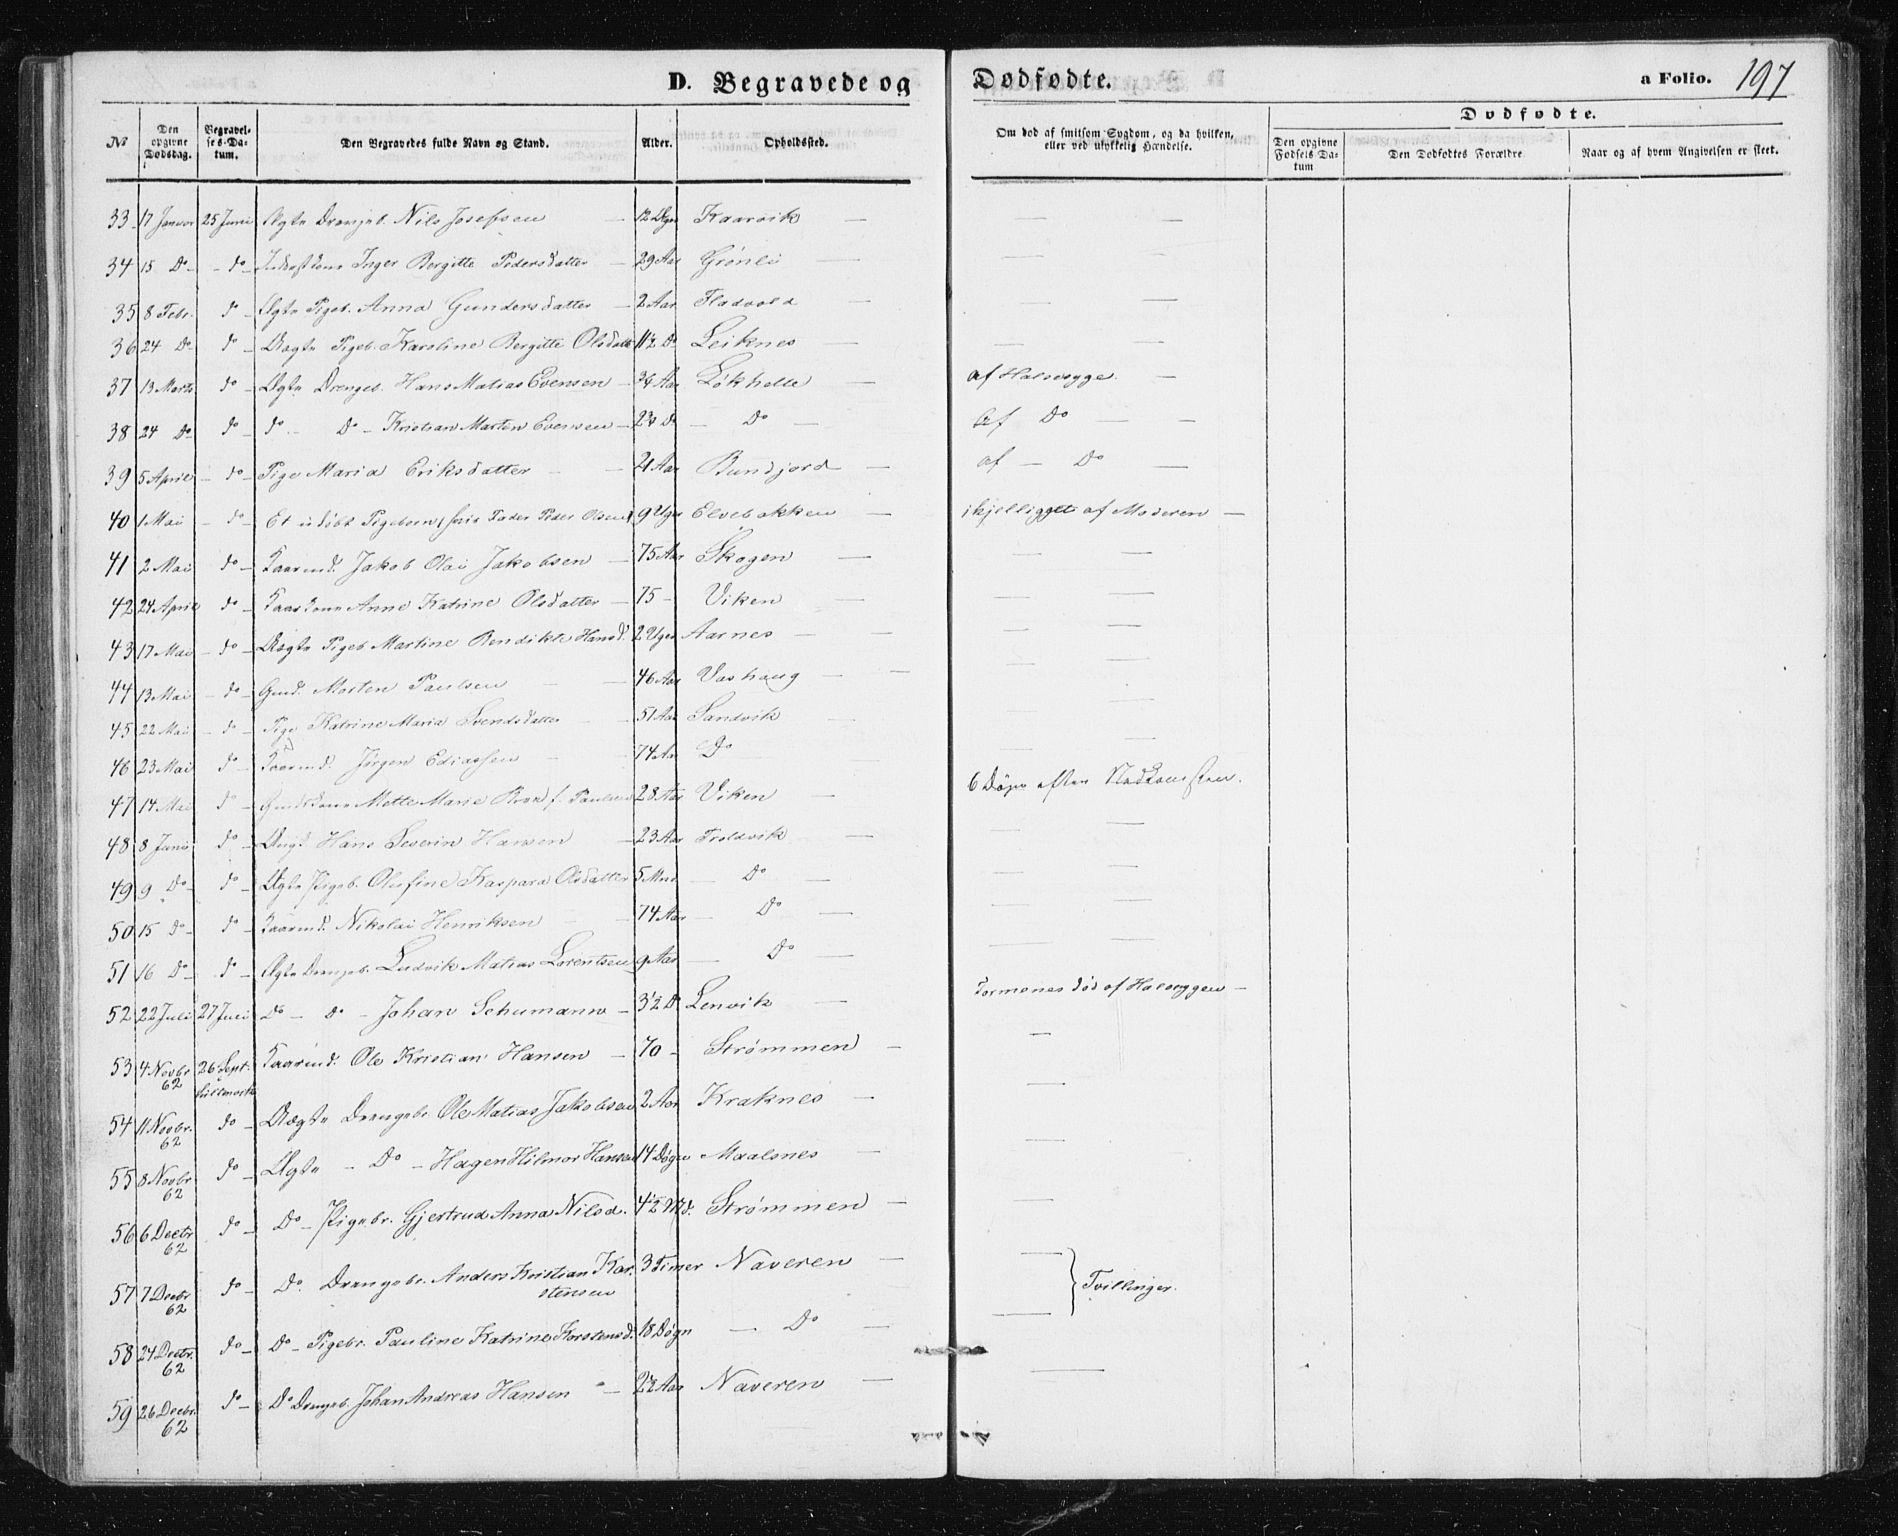 D. Begravede og Dødfødte.
a Folio. 197
No
Den opgivne Dødsdag.
Begravelses-Datum.
Den Begravedes fulde Navn og Stand.
Alder.
Opholdssted.
Om død af smitsom Sygdom, og da hvilken, eller ved ulykkelig Hændelse.
Dødfødte.
Den opgivne Fødsels Datum
Den Dødfødtes Forældre
Naar og af hvem Angivelsen er skeet.
33 17 Januar 25 Juni Ægte Drengeb. Nils Josefsen — 12 Uger Kaarvik —
34 15 Do - do - Inger Bergitte Pedersdatter — 29 Aar Grønli —
35 8 Febr. do - Ægte Pigeb. Anna Gundersdatter — 2 Aar Fladvold —
36 24 Do - do - Uægte Pigeb. Karoline Bergitte Olsdatt 1 1/2 Do Leiknes —
37 13 Marts do - Ægte Drengeb. Hans Matias Evensen — 3/4 Aar Løkhelle — af Halssyge. —
38 24 Do do - do - Do - Kristian Martin Evensen — Do — Af Do —
39 5 April - do - Pige Maria Eriksdatter — 21 Aar Bundjord — af — Do —
40 1 Mai - do - Et udøbt Pigebarn (hvis Fader Peder Olsen) 9 Uger Elvebakken — ihjelligget af Moderen —
41 2 Mai do - Kaarmd. Jakob Olai Jakobsen — 75 Aar Skogen —
42 24 April do - Kaarkone Anne Katrine Olsdatter — 75 - Viken —
43 17 Mai - do - Uægte Pigeb Martine Bendikte Hansd. 2 Uger Aarnes —
44 13 Mai - do - Gmd. Morten Paulsen — 46 Aar Vashaug —
45 22 Mai - do - Pige Katrine Maria Svendsdatter — 51 Aar Sandvik —
46 23 Mai do - Kaarmd. Jørgen Ediassen — 74 Aar Do
47 14 Mai do - Gmdskone Mette Marie f. Paulsen 28 Aar Viken — 6 Døgn efter Nedkomsten.
48 8 Juni do - Ungk Hans Severin Hansen — 23 Aar Troldvik —
49 9 Do - do - Ægte Pigeb. Olufine Kaspara Olsdatter 5 Mnd — Do —
50 15 Do - do - Kaarmd. Nikolai Henriksen — 74 Aar — Do —
51 16 Do - do - Ægte Drengeb. Ludvik Matias Lorentsen 9 Aar — Do —
52 22 Juli 27 Juli Do - Do - Johan Schumann — 3 1/2 Do Lenvik — død af Halssygen —
53 4 Novbr. 62 26 Sept. Kaarmd. Ole Kristian Hansen — 70 - Strømmen —
54 11 Novbr. 62 do - Uægte Drengebr. Ole Matias Jakobsen 2 Aar Kraknes —
55 8 Novbr 62 do - Ægte - Do - Hagen Hilmor Hansen 14 Døgn Maalsnes —
56 6 Decbr 62 do - Do - Pigebr. Gjertrud Anna Nilsd. 4 1/2 Md. Strømmen —
57 7 Decbr 62 do - Do. Drengebr. Anders Kristian Kar- 3 Timer Naveren —
stensen
} Tvillinger.
58 24 Decbr. 62 do - Do - Pigebr. Pauline Katrine Karstensd. 18 Døgn — Do —
59 26 Decbr. 62 do - Do Drengeb. Johan Andreas Hansen — 2 1/2 Aar Naveren —